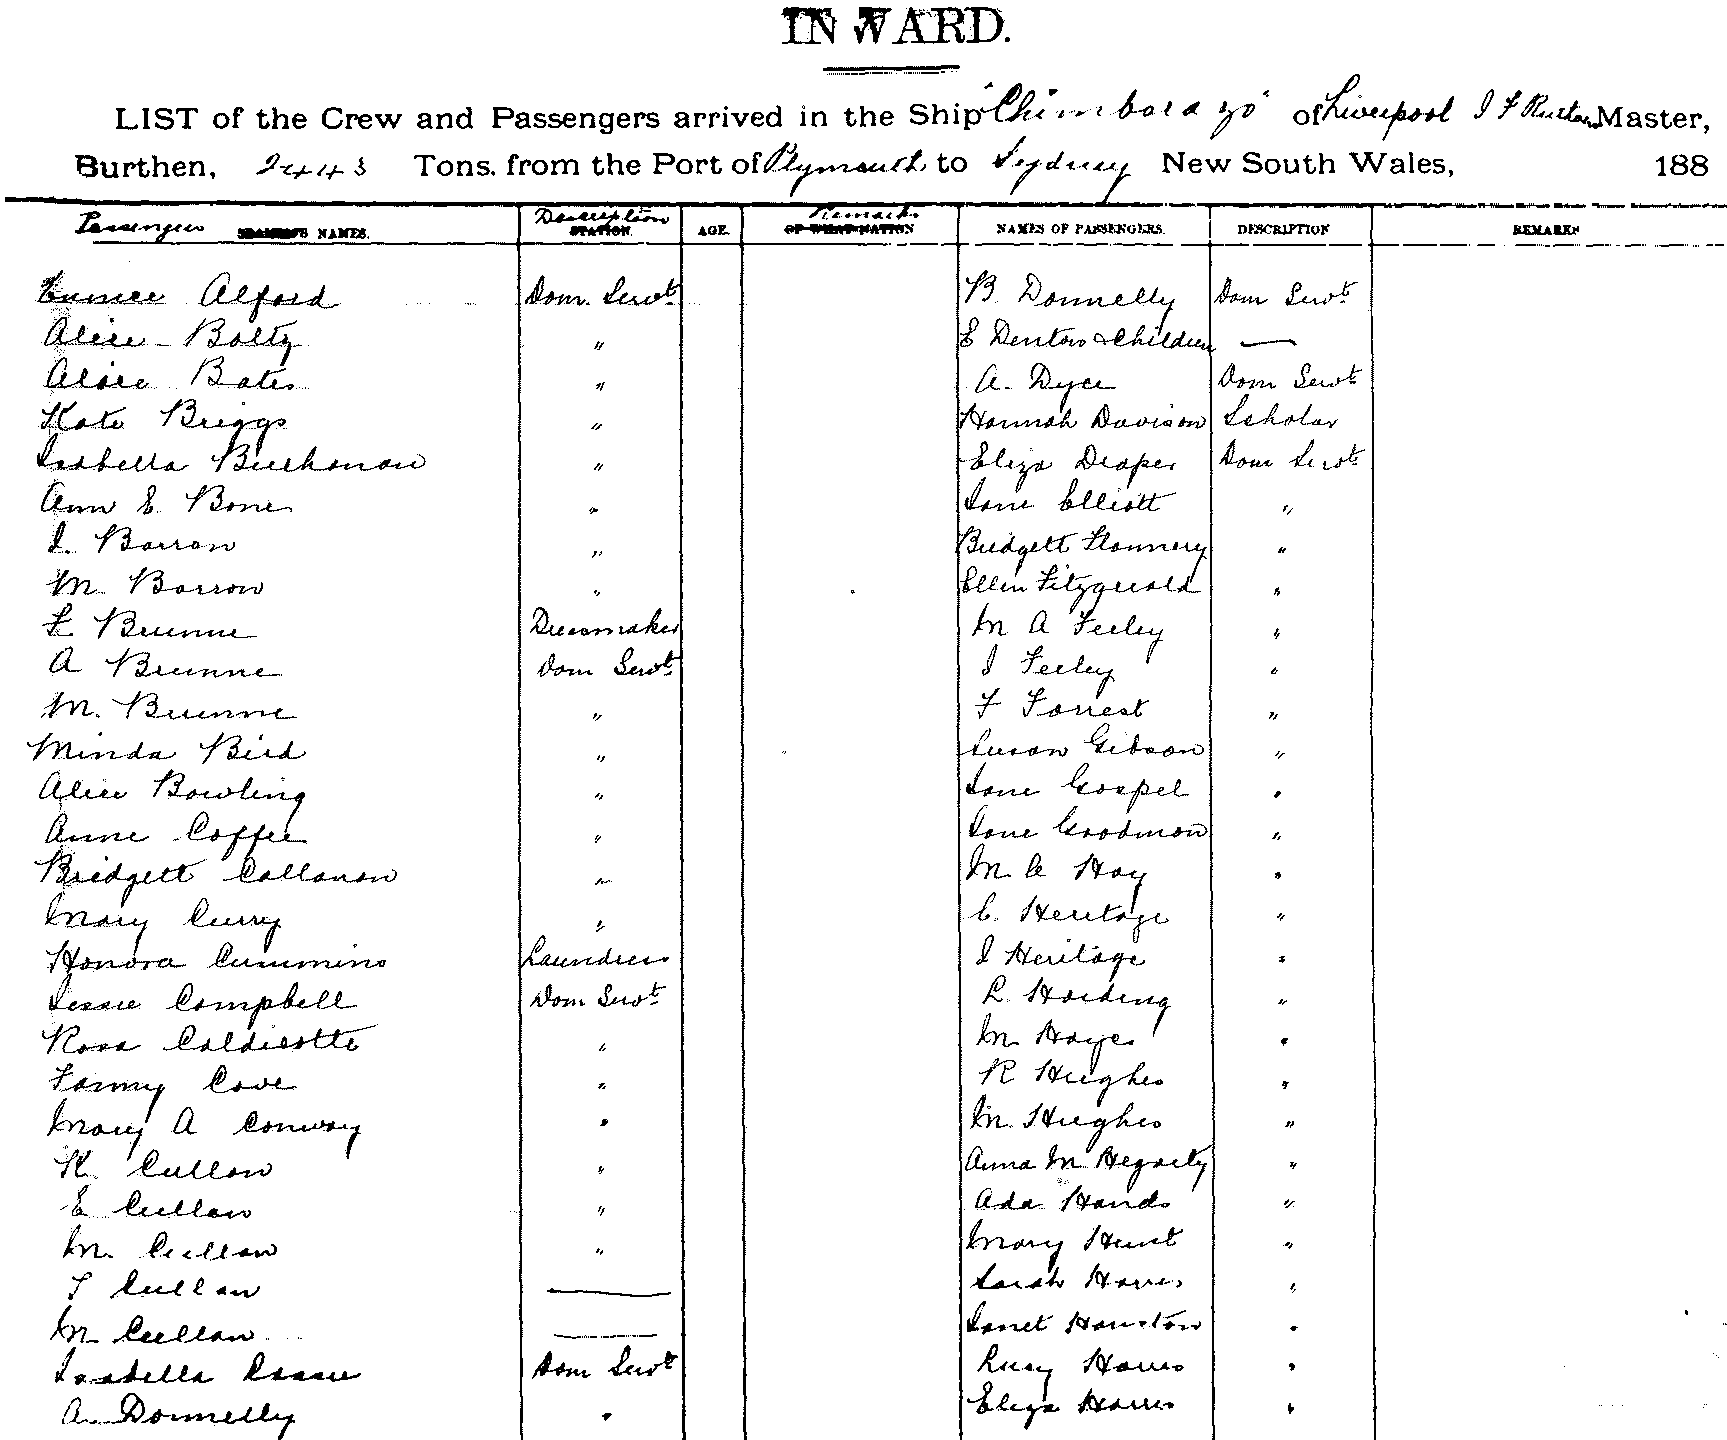 INWARD.
LIST of the Crew and Passengers arrived in the Ship "Chimborazo" of Liverpool J F Ruthven Master,
Burthen, 2443 Tons. from the Port of Plymouth to Sydney New South Wales, 188
Passengers NAMES. Description STATION. AGE. Remarks OF WHAT NATION NAMES OF PASSENGERS. DESCRIPTION REMARKS
Eunice Alford Dom. Servt B Donnelly Dom Servt
Alice Boltz " E Denton & Children —
Alice Bates " A. Dyce Dom Servt
Kate Briggs " Hannah Davison Scholar
Isabella Buchanan " Eliza Draper Dom Servt
Ann E. Bone " Jane Elliott "
J. Barron " Bridgett Flannery "
M. Barron " Ellen Fitzgerald "
F Brunne Dressmaker M A Feeley "
A Brunne Dom Servt J Feeley "
M. Brunne " F Forrest "
Minda Bird " Susan Gibson "
Alice Bowling " Jane Gospel "
Anne Coffee " Jane Goodman "
Bridgett Callanan " M. A Hay "
Mary Curry " C. Heritage "
Honora Cummins Laundress J Heritage "
Jessie Campbell Dom Servt L Harding "
Rosa Caldicotte " M Hayes "
Fanny Cove " R Hughes "
Mary A Conway " M. Hughes "
K. Cullan " Anna M Hegarty "
E Cullan " Ada Hands "
M. Cullan " Mary Hunt "
T Cullan — Sarah Harris "
M Cullan — Janet Houston "
Isabella Dom Servt Lucy Harris "
A. Donnelly " Eliza Harris "